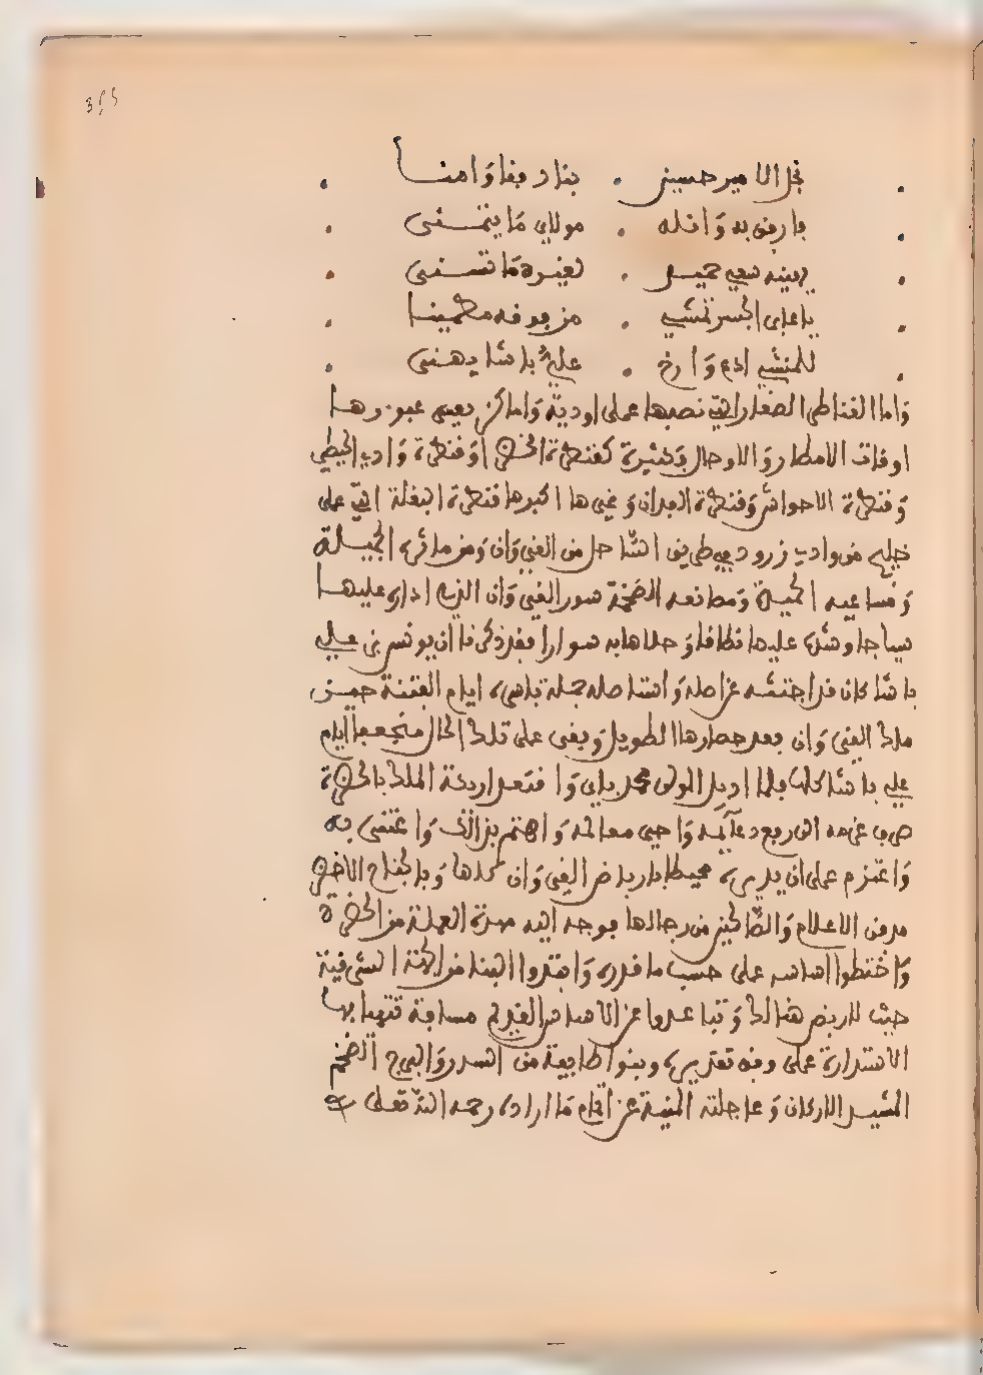 نجل الامير حسين • بناد بقا وامنا
يا رب زده وانله • مولاي ما يتمنى
يمينه سعي حميد • لغيره ما تسنى
يا على الجسر تمشي • من فوقه مطمينا
للمنشي ادع وارخ • علي باشا يهنى
واما القناطر الصغار التي نصبها على اودية واماكن يعسر عبورها
اوقات الامطار والاوحال فكثيرة كقنطرة الخضرا وقنطرة وادي الحطي
وقنطرة الاحواش وقنطرة الفدان وغيرها اكبرها قنطرة البغلة التي على
خليج من وادي زرود بطريق الساحل من القيروان ومن ماثره الجميلة
ومساعيه الحميدة ومصانعه الضخمة سور القيروان الذي ادار عليها
سياجا وشده عليها نطاقا وحلاها به سوارا فقد ذكرنا ان يونس بن علي
باشا كان قد اجتثه عن اصله واستاصله جملة باسره ايام الفتنة حين
ملك القيروان بعد حصارها الطويل وبقى على تلك الحال منجعبا ايام
علي باشا كلها فلما اديل المولى محمد باي وافتعد اريكة الملك بالحضرة
صرف عزمه الى رفع دعايمه واحيى معالمه واهتم بذالك واعتنى به
واعتزم على ان يديره محيطا بارباض القيروان كلها وبالجناح الاخضر
مدفن الاعلام والصالحين من رجالها فوجه اليه مهرة العملة من الحضرة
واختطوا اساسه على حسب ما قدره وابتدوا البنا من الجهة الشرقية
حيث لا ربض هنالك وتباعدوا عن الاساس القديم مسافة تتهيا بها
الاستدارة على وفق تقديره وبنوا طايفة من السور والبرج الضخم
المشيد الاركان وعاجلته المنية عن اتمام ما اراده رحمه الله تعلى